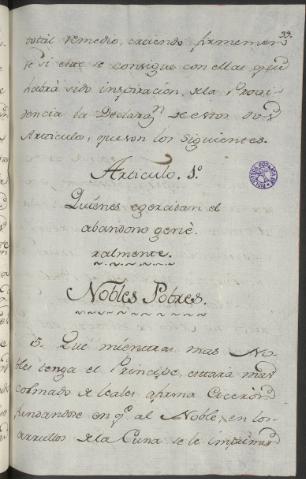 33.
total remedio, creiendo firmemen
te si este se consigue con ellas, que
habrá sido inspiracion, de la Provi
dencia la Declarn. de estos dos
Articulos, que son los siguientes.
Articulo. 1º
Quiénes egercitan el
abandono gene
ralmente.
Nobles Pobres.
5. Que mientras mas No
bles tenga el Principe, estará mas
colmado de leales afirma Cicerón
fundandose en qe. al Noble, en los
arrullos de la Cuna se le imprimen